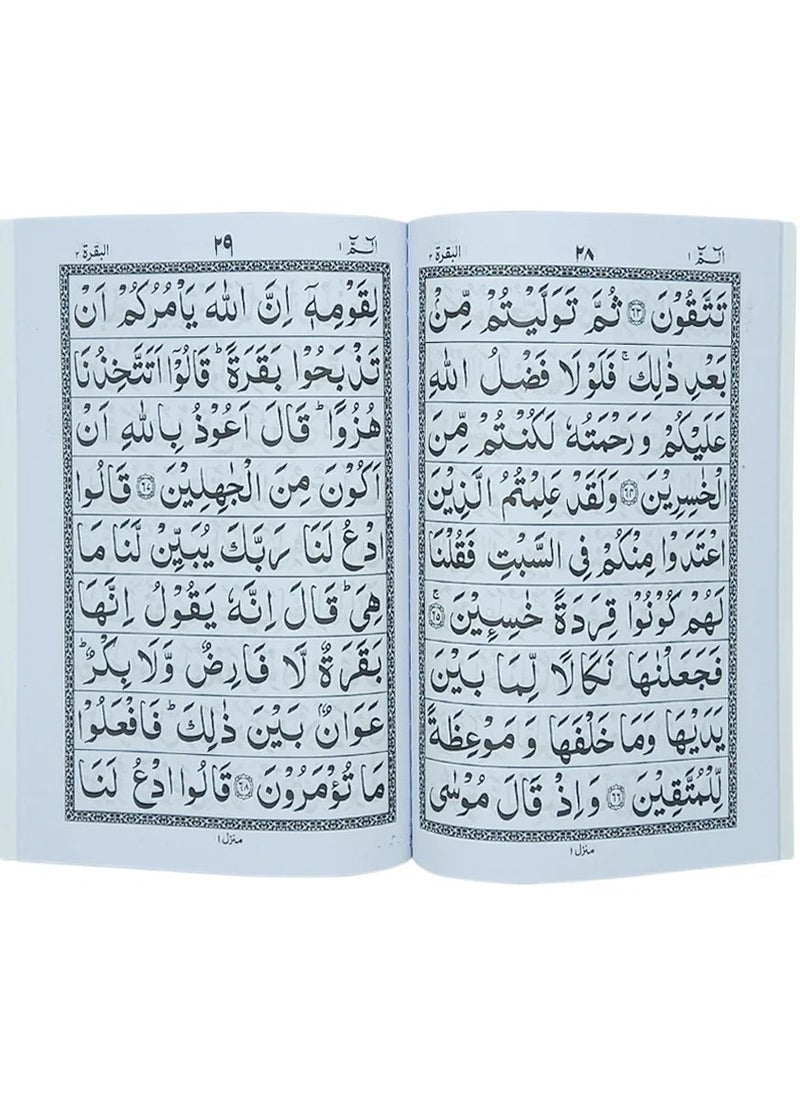 الٓمّٓ ١
٢٨
البقرة ٢
تَتَّقُوْنَ ﴿٦٣﴾ ثُمَّ تَوَلَّيْتُمْ مِّنْۢ
بَعْدِ ذٰلِكَ ۚ فَلَوْلَا فَضْلُ اللّٰهِ
عَلَيْكُمْ وَرَحْمَتُهٗ لَكُنْتُمْ مِّنَ
الْخٰسِرِيْنَ ﴿٦٤﴾ وَلَقَدْ عَلِمْتُمُ الَّذِيْنَ
اعْتَدَوْا مِنْكُمْ فِى السَّبْتِ فَقُلْنَا
لَهُمْ كُوْنُوْا قِرَدَةً خٰسِـِٕيْنَ ۚ ﴿٦٥﴾
فَجَعَلْنٰهَا نَكَالًا لِّمَا بَيْنَ
يَدَيْهَا وَمَا خَلْفَهَا وَ مَوْعِظَةً
لِّلْمُتَّقِيْنَ ﴿٦٦﴾ وَاِذْ قَالَ مُوْسٰى
منزل ١
الٓمّٓ ١
٢٩
البقرة ٢
لِقَوْمِهٖٓ اِنَّ اللّٰهَ يَاْمُرُكُمْ اَنْ
تَذْبَحُوْا بَقَرَةً ؕ قَالُوْٓا اَتَتَّخِذُنَا
هُزُوًا ؕ قَالَ اَعُوْذُ بِاللّٰهِ اَنْ
اَكُوْنَ مِنَ الْجٰهِلِيْنَ ﴿٦٧﴾ قَالُوا
ادْعُ لَنَا رَبَّكَ يُبَيِّنْ لَّنَا مَا
هِىَ ؕ قَالَ اِنَّهٗ يَقُوْلُ اِنَّهَا
بَقَرَةٌ لَّا فَارِضٌ وَّلَا بِكْرٌ ؕ
عَوَانٌۢ بَيْنَ ذٰلِكَ ؕ فَافْعَلُوْا
مَا تُؤْمَرُوْنَ ﴿٦٨﴾ قَالُوا ادْعُ لَنَا
منزل ١